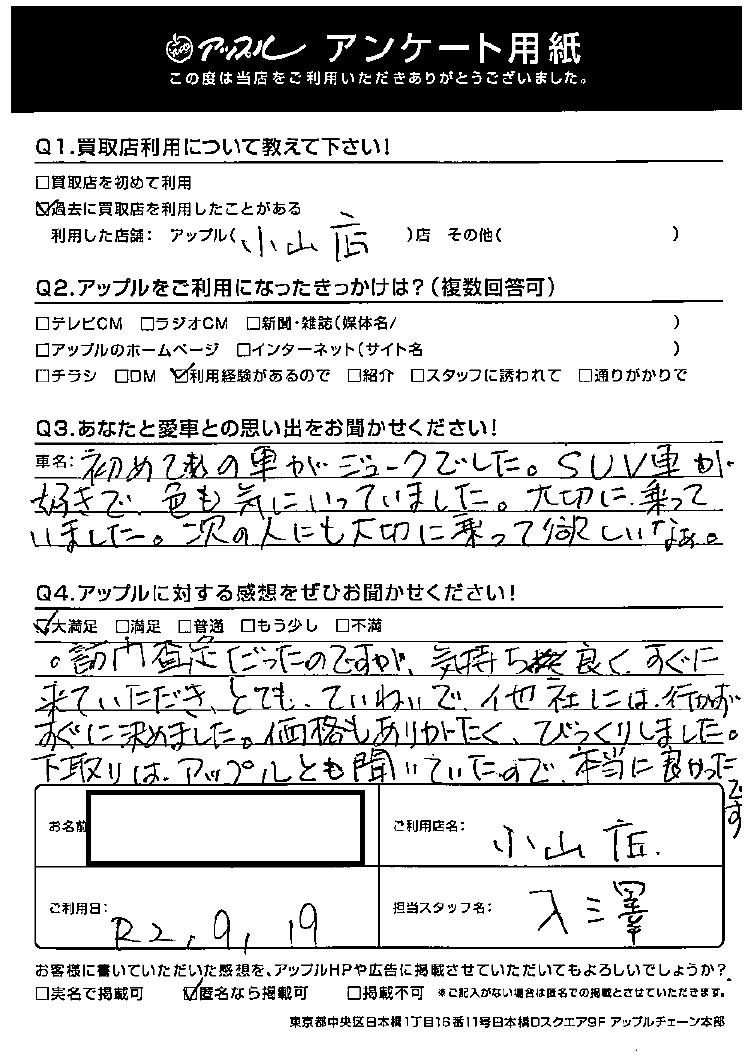 アップル アンケート用紙
この度は当店をご利用いただきありがとうございました。
Q1.買取店利用について教えて下さい!
□買取店を初めて利用
☑過去に買取店を利用したことがある
利用した店舗： アップル(小山店)店 その他( )
Q2.アップルをご利用になったきっかけは?(複数回答可)
□テレビCM □ラジオCM □新聞・雑誌(媒体名/ )
□アップルのホームページ □インターネット(サイト名 )
□チラシ □DM ☑利用経験があるので □紹介 □スタッフに誘われて □通りがかりで
Q3.あなたと愛車との思い出をお聞かせください!
車名: 初めての車がジュークでした。SUV車が
好きで、色も気にいっていました。大切に乗って
いました。次の人にも大切に乗って欲しいなぁ。
Q4.アップルに対する感想をぜひお聞かせください!
☑大満足 □満足 □普通 □もう少し □不満
。訪問査定だったのですが、気持ち良く、すぐに
来ていただき、とても、ていねいで、他社には、行かず
すぐに決めました。価格もありがたく、びっくりしました。
下取りは、アップルとも聞いていたので、本当に良かった
です
お名前
ご利用店名: 小山店.
ご利用日: R2, 9, 19
担当スタッフ名: 入澤
お客様に書いていただいた感想を、アップルHPや広告に掲載させていただいてもよろしいでしょうか?
□実名で掲載可 ☑匿名なら掲載可 □掲載不可 ※ご記入がない場合は匿名での掲載とさせていただきます。
東京都中央区日本橋1丁目16番11号日本橋Dスクエア9F アップルチェーン本部